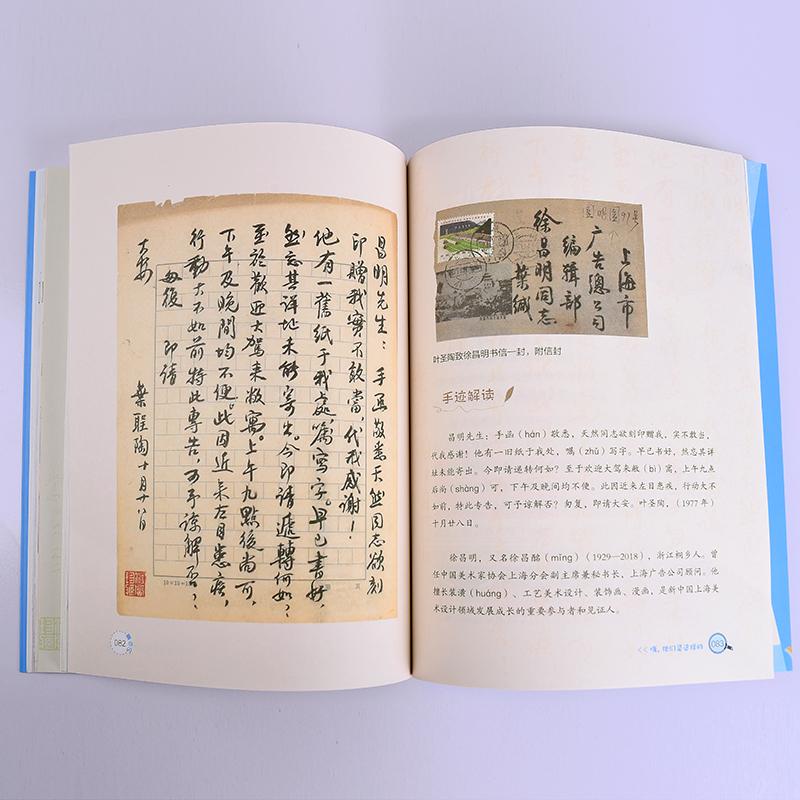 昌明先生：手函敬悉天然同志欲刻
印赠我實不敢當，代我感謝！
他有一舊紙于我處，囑寫字。早已書好，
然忘其详址未能寄出。今即請遞轉何如？
至於歡迎大駕来敝寓。上午九點後尚可，
下午及晚間均不便。此因近来左目患疾，
行動大不如前特此專告，可予諒解否？
匆復 即請
大安
葉聖陶 十月廿八日
082
上海市
广告總公司
编辑部
徐昌明同志
葉缄
叶圣陶致徐昌明书信一封，附信封
手迹解读
昌明先生：手函（hán）敬悉，天然同志欲刻印赠我，实不敢当，
代我感谢！他有一旧纸于我处，嘱（zhǔ）写字。早已书好，然忘其详
址未能寄出。今即请递转何如？至于欢迎大驾来敝（bì）寓，上午九点
后尚（shàng）可，下午及晚间均不便。此因近来左目患疾，行动大不
如前，特此专告，可予谅解否？匆复，即请大安。叶圣陶，（1977年）
十月廿八日。
徐昌明，又名徐昌酩（mǐng）（1929—2018），浙江桐乡人。曾
任中国美术家协会上海分会副主席兼秘书长，上海广告公司顾问。他
擅长装潢（huáng）、工艺美术设计、装饰画、漫画，是新中国上海美
术设计领域发展成长的重要参与者和见证人。
嘿，他们是这样的
083